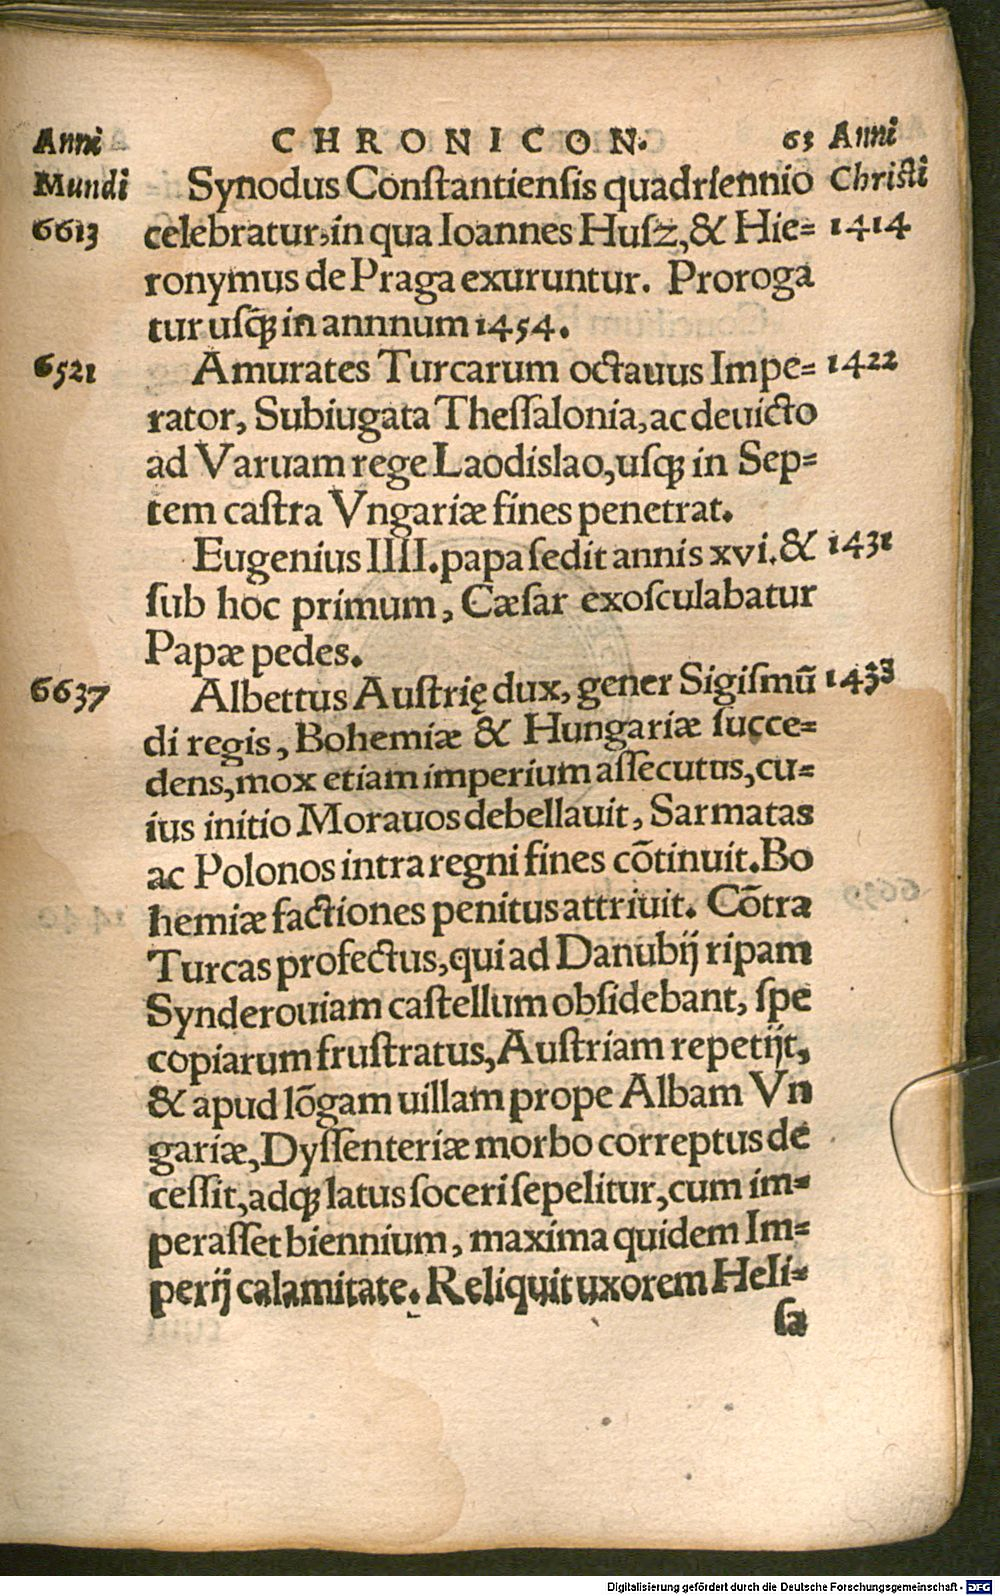 Anni CHRONICON. 63 Anni
Mundi Synodus Conſtantienſis quadriennio Chriſti
6613 celebratur, in qua Ioannes Huſz, & Hie= 1414
ronymus de Praga exuruntur. Proroga
tur uſqꝫ in annnum 1454.
6521 Amurates Turcarum octauus Impe= 1422
rator, Subiugata Theſſalonia, ac deuicto
ad Varuam rege Laodislao, uſqꝫ in Sep=
tem caſtra Vngariæ fines penetrat.
Eugenius IIII. papa ſedit annis xvi. & 1431
ſub hoc primum, Cæſar exoſculabatur
Papæ pedes.
6637 Albettus Auſtrię dux, gener Sigiſmū 1438
di regis, Bohemiæ & Hungariæ ſucce=
dens, mox etiam imperium aſſecutus, cu=
ius initio Morauos debellauit, Sarmatas
ac Polonos intra regni fines cōtinuit. Bo
hemiæ factiones penitus attriuit. Cōtra
Turcas profectus, qui ad Danubij ripam
Synderouiam caſtellum obſidebant, ſpe
copiarum fruſtratus, Auſtriam repetijt,
& apud lōgam uillam prope Albam Vn
gariæ, Dyſſenteriæ morbo correptus de
ceſſit, adqꝫ latus ſoceri ſepelitur, cum im=
peraſſet biennium, maxima quidem Im=
perij calamitate. Reliquit uxorem Heli=
ſa
Digitalisierung gefördert durch die Deutsche Forschungsgemeinschaft - DFG